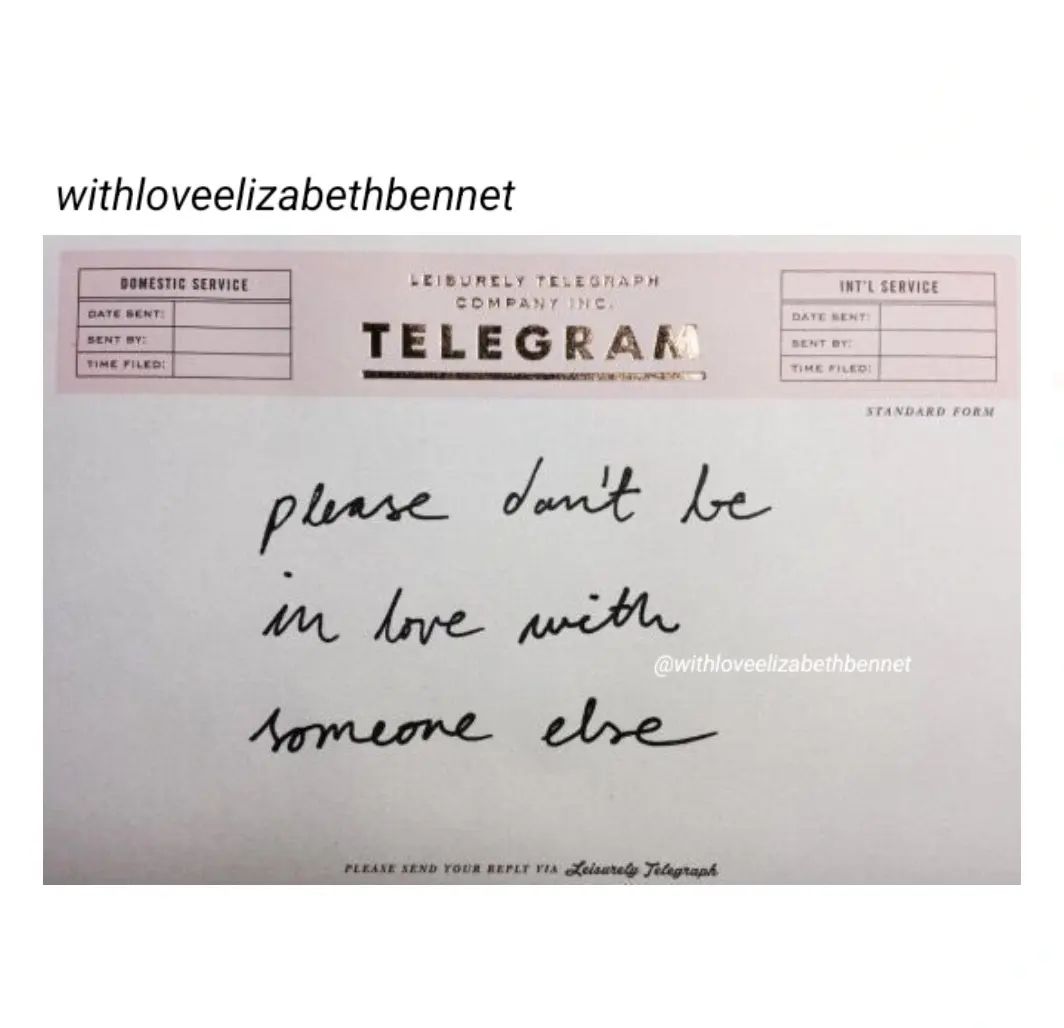 withloveelizabethbennet
DOMESTIC SERVICE
DATE SENT:
SENT BY:
TIME FILED:
LEISURELY TELEGRAPH
COMPANY INC.
TELEGRAM
INT'L SERVICE
DATE SENT:
SENT BY:
TIME FILED:
STANDARD FORM
please don't be
in love with
@withloveelizabethbennet
someone else
PLEASE SEND YOUR REPLY VIA Leisurely Telegraph